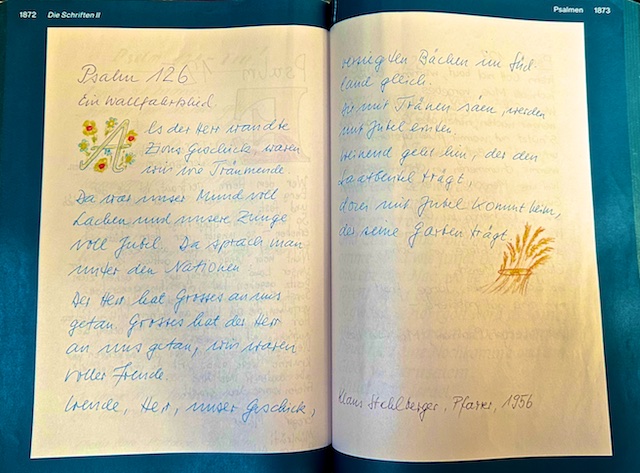 1872 Die Schriften II
Psalm 126
Ein Wallfahrtslied.
Als der Herr wandte
Zions Geschick waren
wir wie Träumende
Da war unser Mund voll
Lachen und unsere Zunge
voll Jubel. Da sprach man
unter den Nationen
Der Herr hat Grosses an uns
getan Grosses hat der Herr
an uns getan, wir waren
voller Freude.
Wende, Herr, unser Geschick,
Psalmen 1873
versiegten Bächen im Süd-
land gleich.
Die mit Tränen säen, werden
mit Jubel ernten.
Weinend geht hin, der den
Saatbeutel trägt,
doch mit Jubel kommt heim,
der seine Garben trägt
Klaus Stahlberger, Pfarrer, 1956